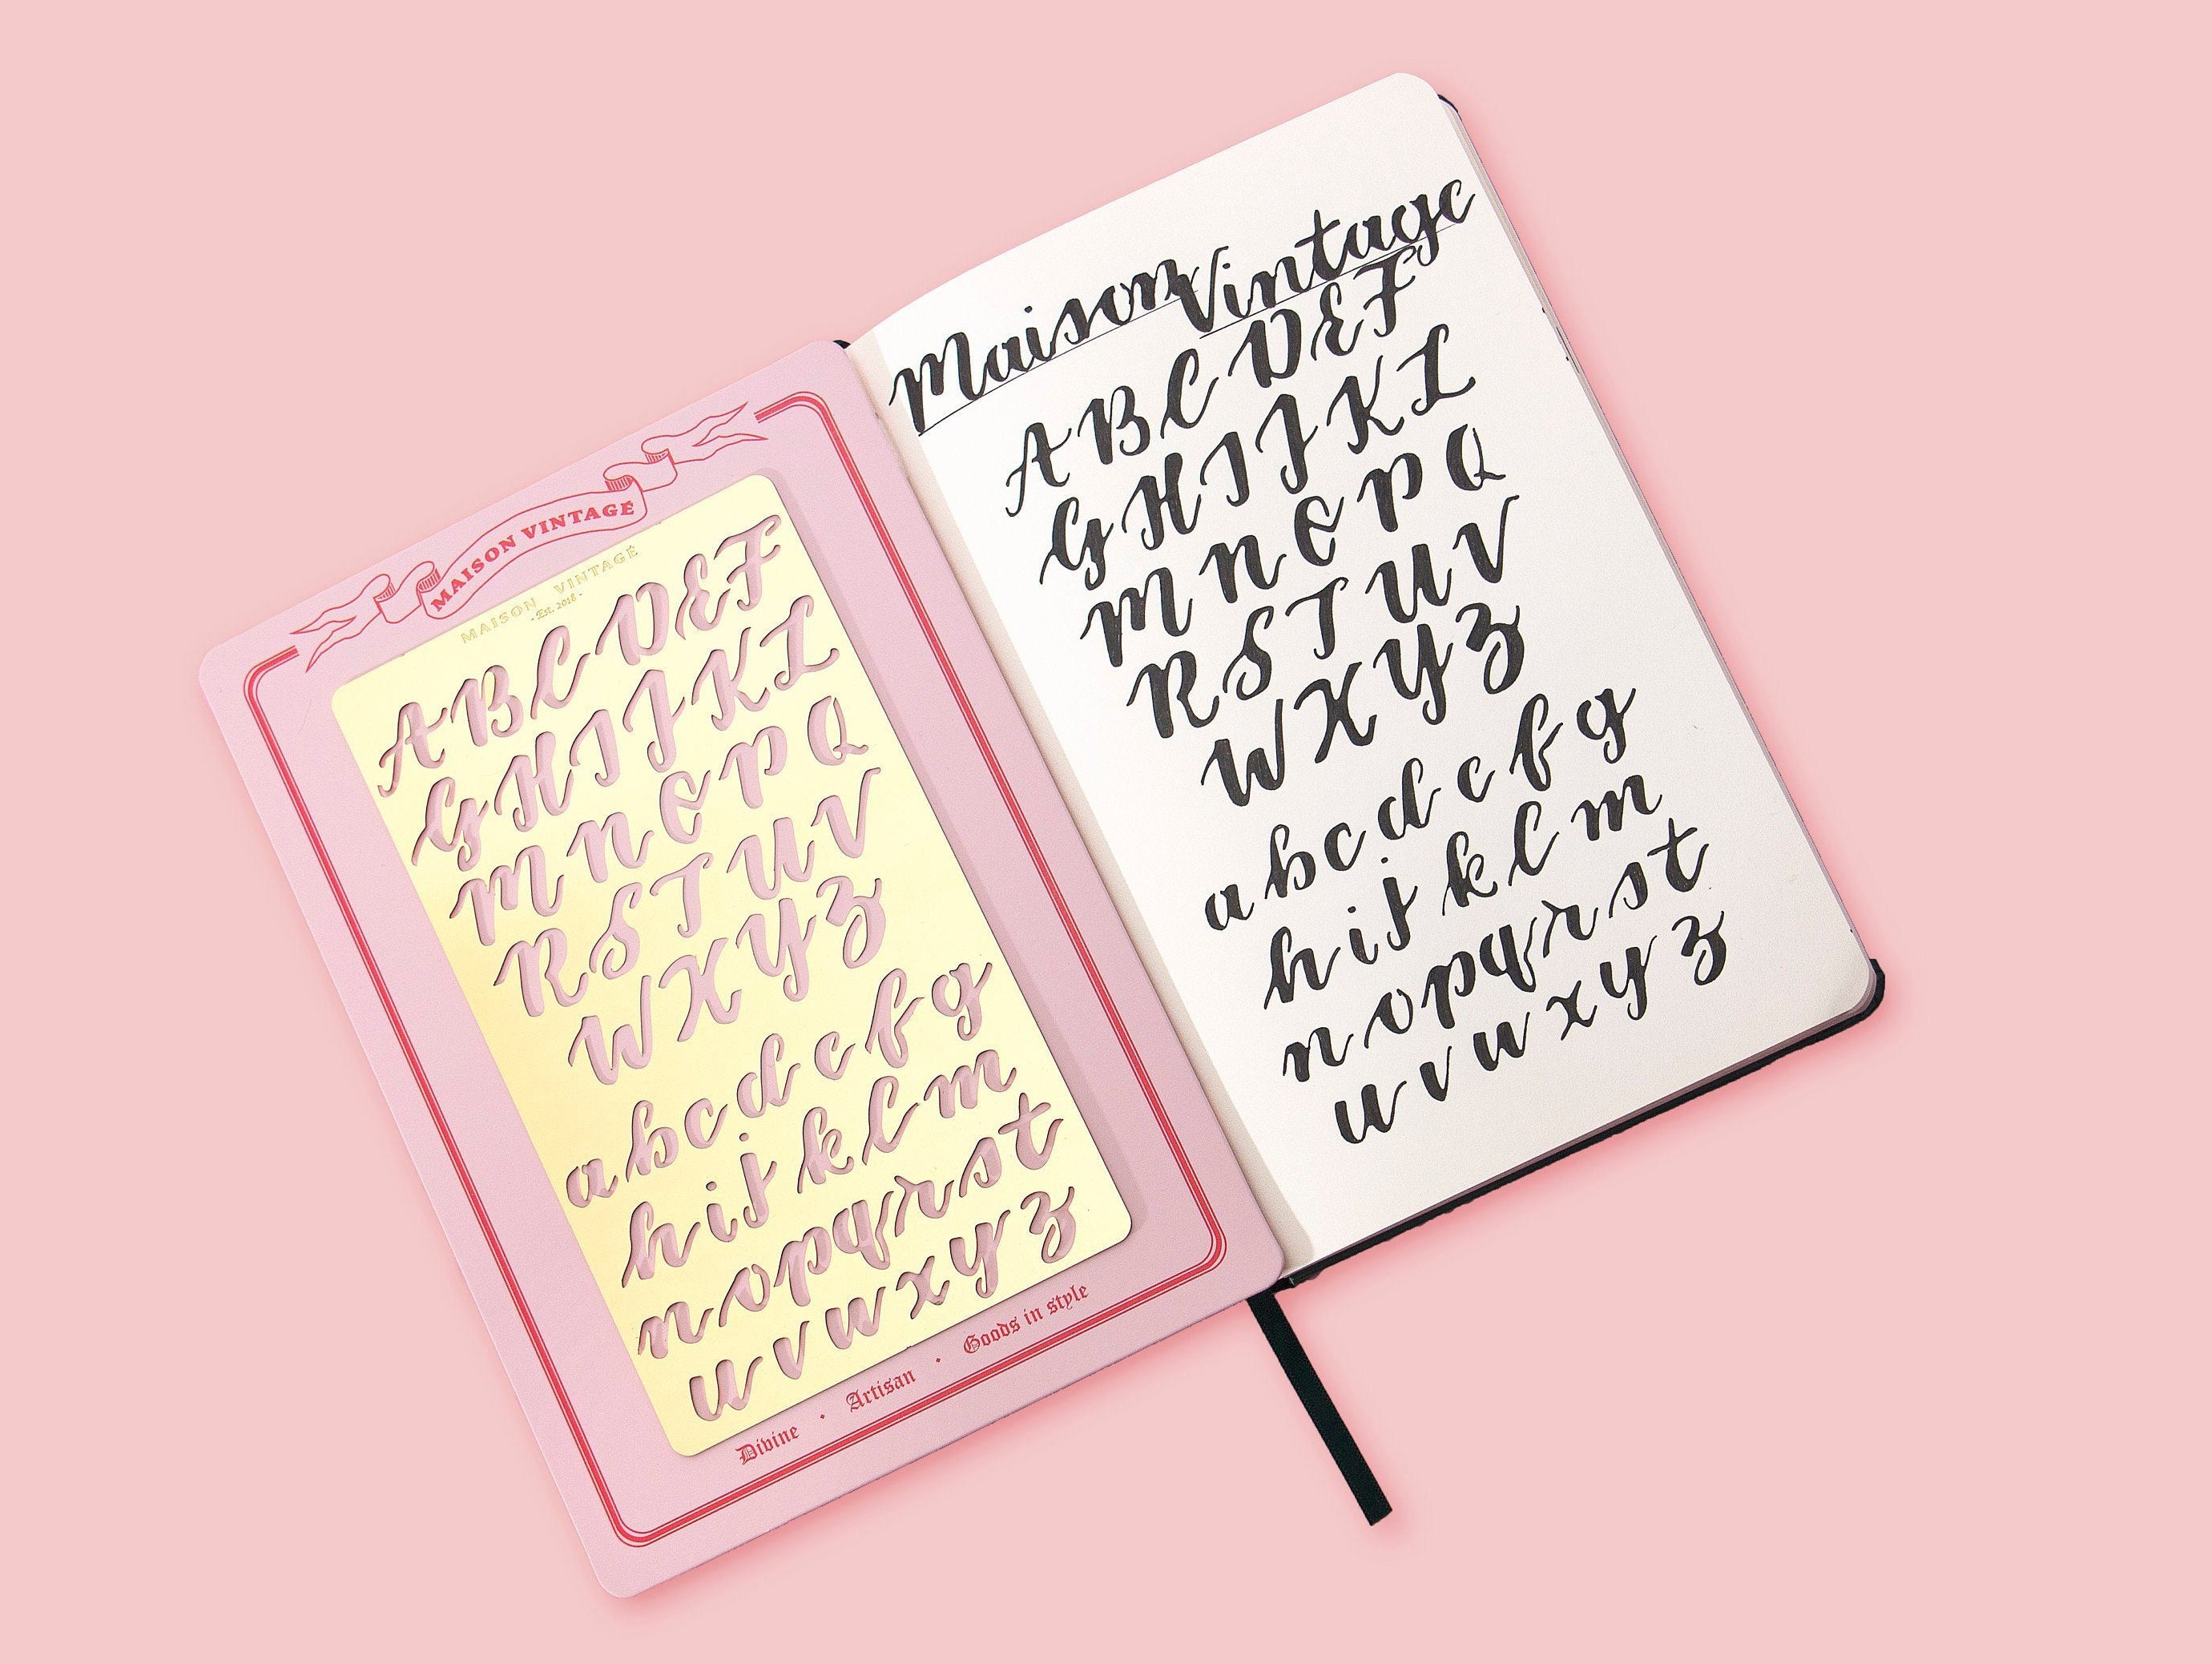 MAISON VINTAGÉ
MAISON VINTAGÉ
-Est. 2018-
A B C D E F
G H I J K L
M N O P Q
R S T U V
W X Y Z
a b c d e f g
h i j k l m
n o p q r s t
u v w x y z
Divine • Artisan • Goods in style
Maison Vintage
A B C D E F
G H I J K L
M N O P Q
R S T U V
W X Y Z
a b c d e f g
h i j k l m
n o p q r s t
u v w x y z